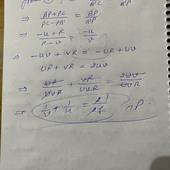 ⇒ BP+PC / PC-PB' = BP / B'P
⇒ -u+R / R-v = -u / v
⇒ -uv + vR = -uR + uv
uR + vR = 2uv
⇒ uR / uvR + vR / uvR = 2uv / uvR
⇒ 1/v + 1/u =